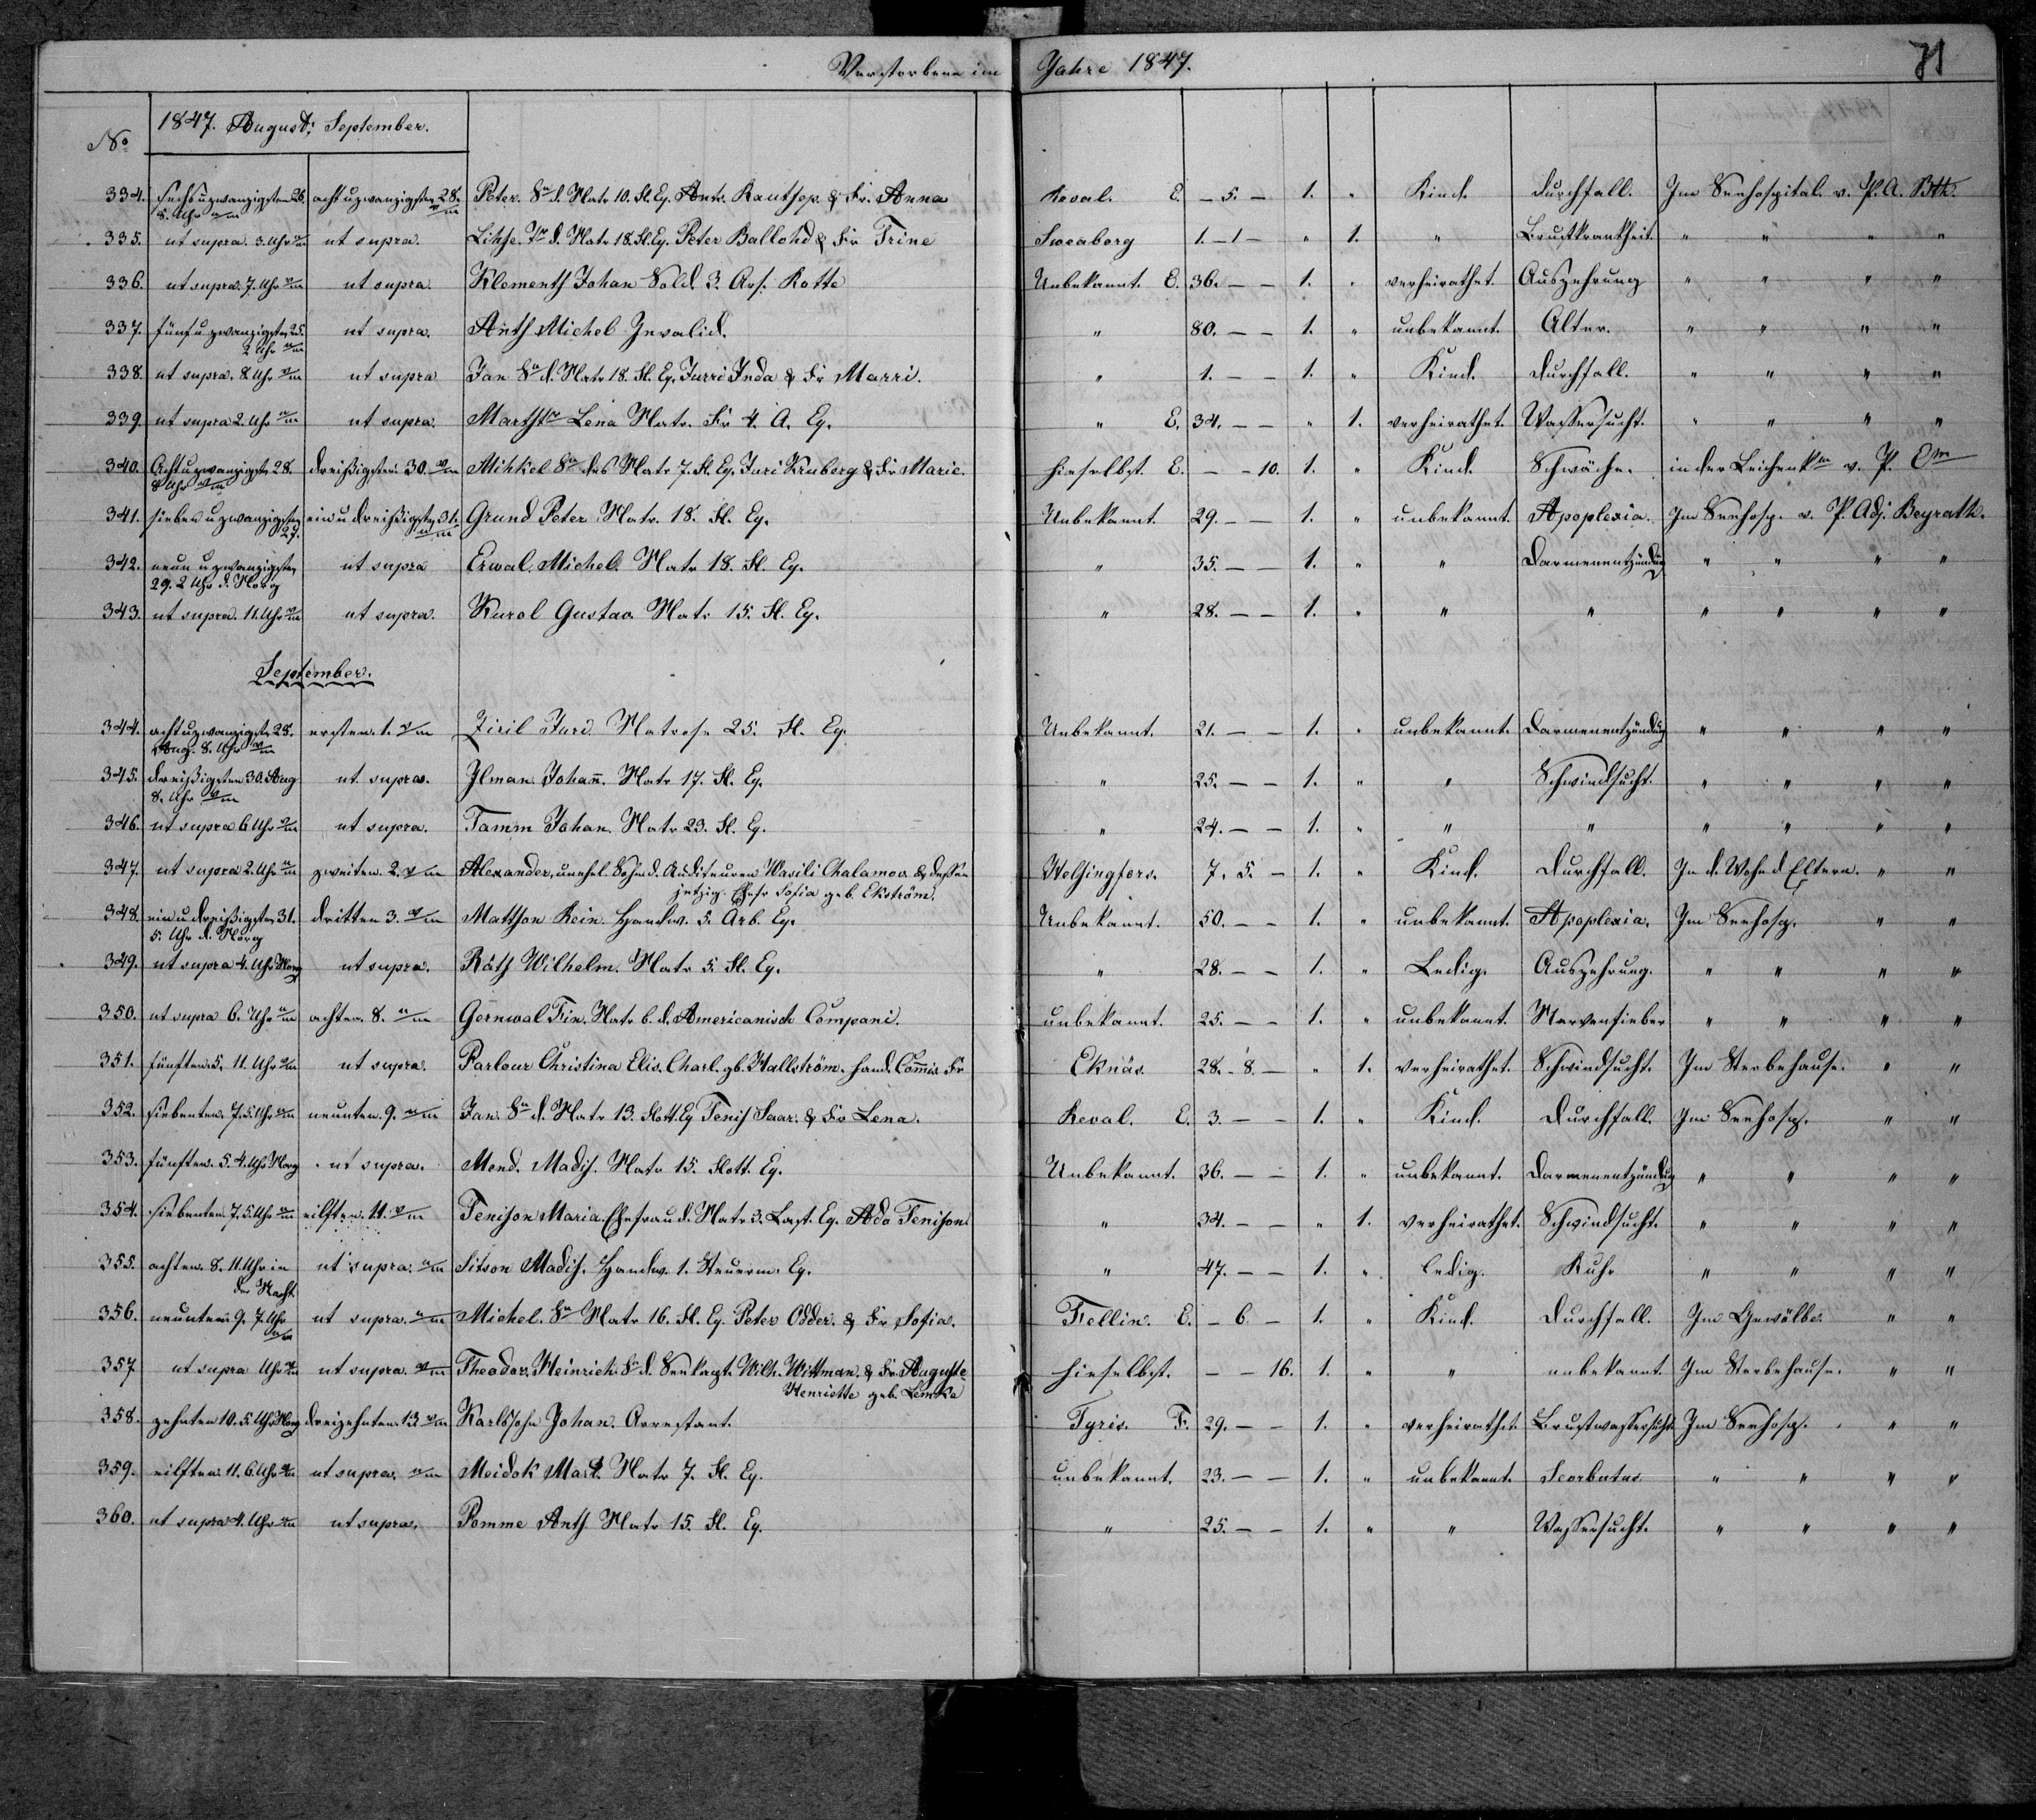 Verstorbene im Jahre 1847.
71
No 1847. August, September.
334. sechs u zwanzigsten 26. acht u zwanzigsten 28. Peter. Sn d. Matr 10. Fl. Eq. Kautsep. & Fr. Anna Reval. E. – 5. – 1. " Kind. Durchfall. Im Seehospital. v. P. A. Bth.
5. Uhr n/m v/m
335. ut supra. 3. Uhr ut supra. Lihse. Tr d. Matr 18. Fl. Eq. Peter Ballohd & Fr Trine Sweaborg 1. – 1 – " 1. " Brustkrankheit. " " " "
336. ut supra. 7. Uhr ut supra Klementh Johan Sold. 3. Ars. Rotte Unbekannt. E. 36. – – 1. " verheirathet. Auszehrung " " " "
337. fünf u zwanzigsten 25. ut supra. Anth Michel Invalid. " 80. – – 1. " unbekannt. Alter. " " " "
2 Uhr n/m
338. ut supra. 8. Uhr ut supra Jan Sn d. Matr 18. Fl. Eq. Jurri Inda & Fr Marri. " 1. – – 1. " Kind. Durchfall. " " " "
339. ut supra 2. Uhr ut supra. Lena Matr. Fr 4. A. Eq. " E. 34. – – " 1. verheirathet. Wassersucht. " " " "
340. Acht u zwanzigsten 28. dreißigsten 30. Mihkel Sn des Matr 7. Fl. Eq. Juri Kruberg & Fr Marie. hieselbst. E. – – 10. 1. " Kind. Schwäche. in der v. P.
8 Uhr v/m
341. sieben u zwanzigsten ein u dreißigsten 31. Grund Peter. Matr. 18. Fl. Eq. Unbekannt. 29. – – 1. " unbekannt. Apoplexia. Im Seehosp. v. P. Adj. Beyrath.
27.
342. neun u zwanzigsten ut supra Erwal. Michel. Matr 18. Fl. Eq. " 35. – – 1. " " Darmenentzündung " " " "
29. 2 Uhr d. Morg
343. ut supra. 11. Uhr ut supra. Kurol Gustav. Matr 15. Fl. Eq. " 28. – – 1. " " " " " " "
September.
344. acht u zwanzigsten 28. ersten. 1. v/m Ziril Juri. Matrose 25. Fl. Eq. Unbekannt. 21. – – 1. " unbekannt. Darmenentzündung " " " "
Aug. 8. Uhr v/m
345. dreißigsten 30. Aug ut supra. Ilman. Johañ. Matr 17. Fl. Eq. " 25. – – 1. " " Schwindsucht. " " " "
8. Uhr v/m
346. ut supra 6. Uhr ut supra. Tamm Johan. Matr 23. Fl. Eq. " 24. – – 1. " " " " " " "
347. ut supra 2. Uhr zweiten. 2. v/m Alexander, unehl. Sohn d. Auditeuren Wasili Chalamov & dessen Helsingfors. 7. 5. – 1. " Kind. Durchfall. In d. Wohn d Eltern. " "
jetzig. Ehefr Sofia geb. Ekström.
348. ein u dreißigsten 31. dritten 3. Mattson Rein. Handw. 5. Arb. Eq. Unbekannt. 50. – – 1. " unbekannt. Apoplexia. Im Seehosp. " "
5. Uhr d. Morg
349. ut supra 4. Uhr Morg ut supra. Räth Wilhelm. Matr 5. Fl. Eq. " 28. – – 1. " Ledig. Auszehrung. " " " "
350. ut supra 6. Uhr achten. 8. n/m Gernwal Fin. Matr b. d. Americanisch Compani. unbekannt. 25. – – 1. " unbekannt. Nervenfieber " " " "
351. fünften. 5. 11. Uhr ut supra. Parlour Christina Elis. Charl. gb. Hallström. Comis Fr Eknäs. 28. – 8. – " 1. verheirathet. Schwindsucht. Im Sterbehause. " "
352. siebenten. 7. 5. Uhr neunten. 9. Jan. Sn d. Matr 13. Flott. Eq Tenis Saar. & Fr Lena. Reval. E. 3. – – 1. " Kind. Durchfall. Im Seehosp. " "
353. fünften. 5. 4. Uhr Morg ut supra. Mend. Madis. Matr 15. Flott. Eq. Unbekannt. 36. – – 1. " unbekannt. Darmenentzündung " " " "
354. siebenten. 7. 5. Uhr eilften. 11. v/m Tenison Maria. Ehefrau d. Matr 3. Last. Eq. Ado Tenison " 34. – – " 1. verheirathet. Schwindsucht. " " " "
355. achten. 8. 11. Uhr in ut supra. Sitson Madis. Handw. 1. Steuerm. Eq. " 47. – – 1. " Ledig. Ruhr " " " "
der Nacht
356. neunten. 9. 7. Uhr ut supra. Michel. Sn Matr 16. Fl. Eq. Peter Odder. & Fr Sofia. Fellin. E. – 6 – 1. " Kind. Durchfall. Im Gewölbe " "
357. ut supra Uhr ut supra. Theodor. Heinrich Sn d. Wilh. Wittman. & Fr. Auguste hieselbst. – – 16. 1. " " unbekannt. Im Sterbehause. " "
Henriette geb. Lemke
358. zehnten 10. 5. Uhr Morg dreizehnten. 13 Karlssohn Johan. Arrestant. Tyris. F. 29. – – 1. " verheirathet. Brustwassersucht. Im Seehosp. " "
359. eilften. 11. 6. Uhr ut supra. Meidok Mart. Matr 7. Fl. Eq. unbekannt. 23. – – 1. " unbekannt. Scorbutus " " " "
360. ut supra 4. Uhr ut supra. Pomme Anth Matr 15. Fl. Eq. " 25. – – 1. " " Wassersucht. " " " "